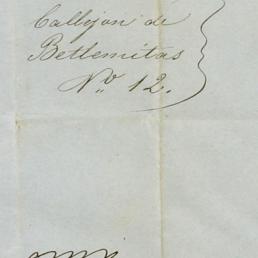 Callejon de
Betlemitas
No. 12.